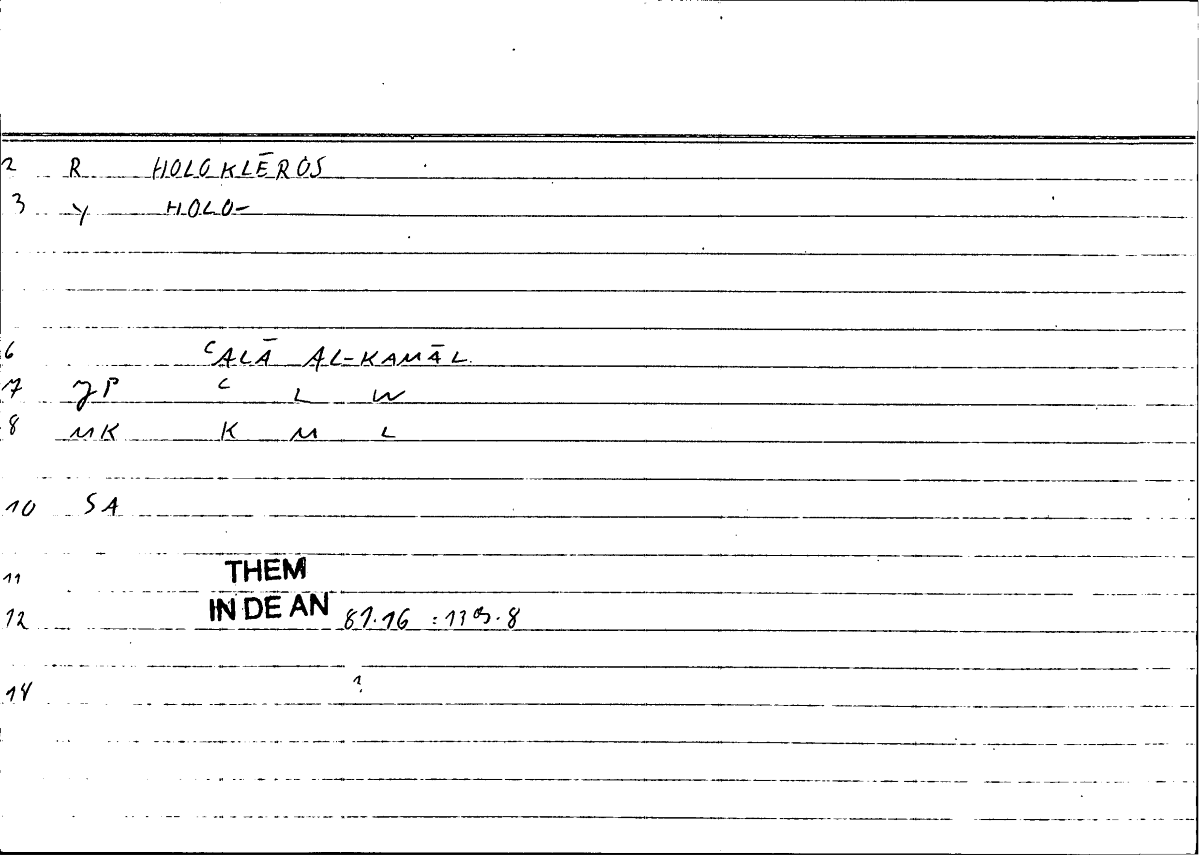 2 R HOLOKLĒROS
3 Y HOLO-
6 ʿALĀ AL-KAMĀL
7 JP ʿ L W
8 MK K M L
10 SA
11 THEM
12 IN DE AN 87.16 :
14 ?